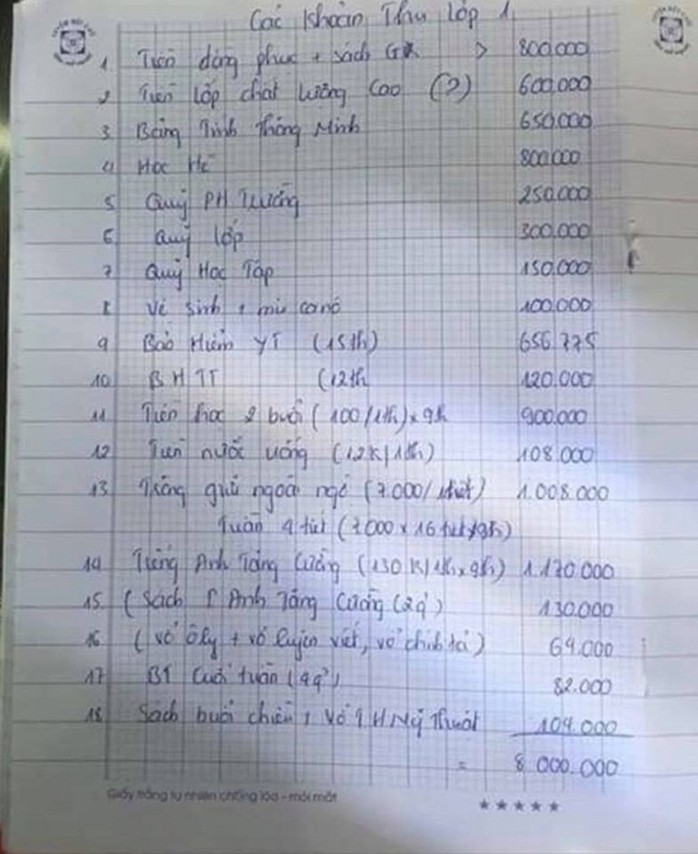 Các khoản Thu lớp 1
1 Tiền đồng phục + sách GK > 800.000
2 Tiền lớp chất lượng cao (?) 600.000
3 Bảng Tính Thông Minh 650.000
4 Học Hè 800.000
5 Quỹ PH Trường 250.000
6 Quỹ lớp 300.000
7 Quỹ Học Tập 150.000
8 Vệ sinh + 100.000
9 Bảo Hiểm YT (15th) 656.775
10 BHTT (12th 120.000
11 Tiền học 2 buổi (100/1th) x 9th 900.000
12 Tiền nước uống (12K/1th) 108.000
13 Tiếng ngoại ngữ (7.000/1tiết) 1.008.000
Tuần 4 tiết (7000 x 16 tiết/9th)
14 Tiếng Anh Tăng Cường (130K/1th x 9th) 1.170.000
15 (Sách T Anh Tăng Cường (2q) 130.000
16 (vở ôly + vở luyện viết, vở chính tả) 64.000
17 BT Cuối tuần (4q) 82.000
18 Sách buổi chiều, vở TH Mỹ Thuật 104.000
= 8.000.000
Giấy trắng tự nhiên chống lóa - mỏi mắt